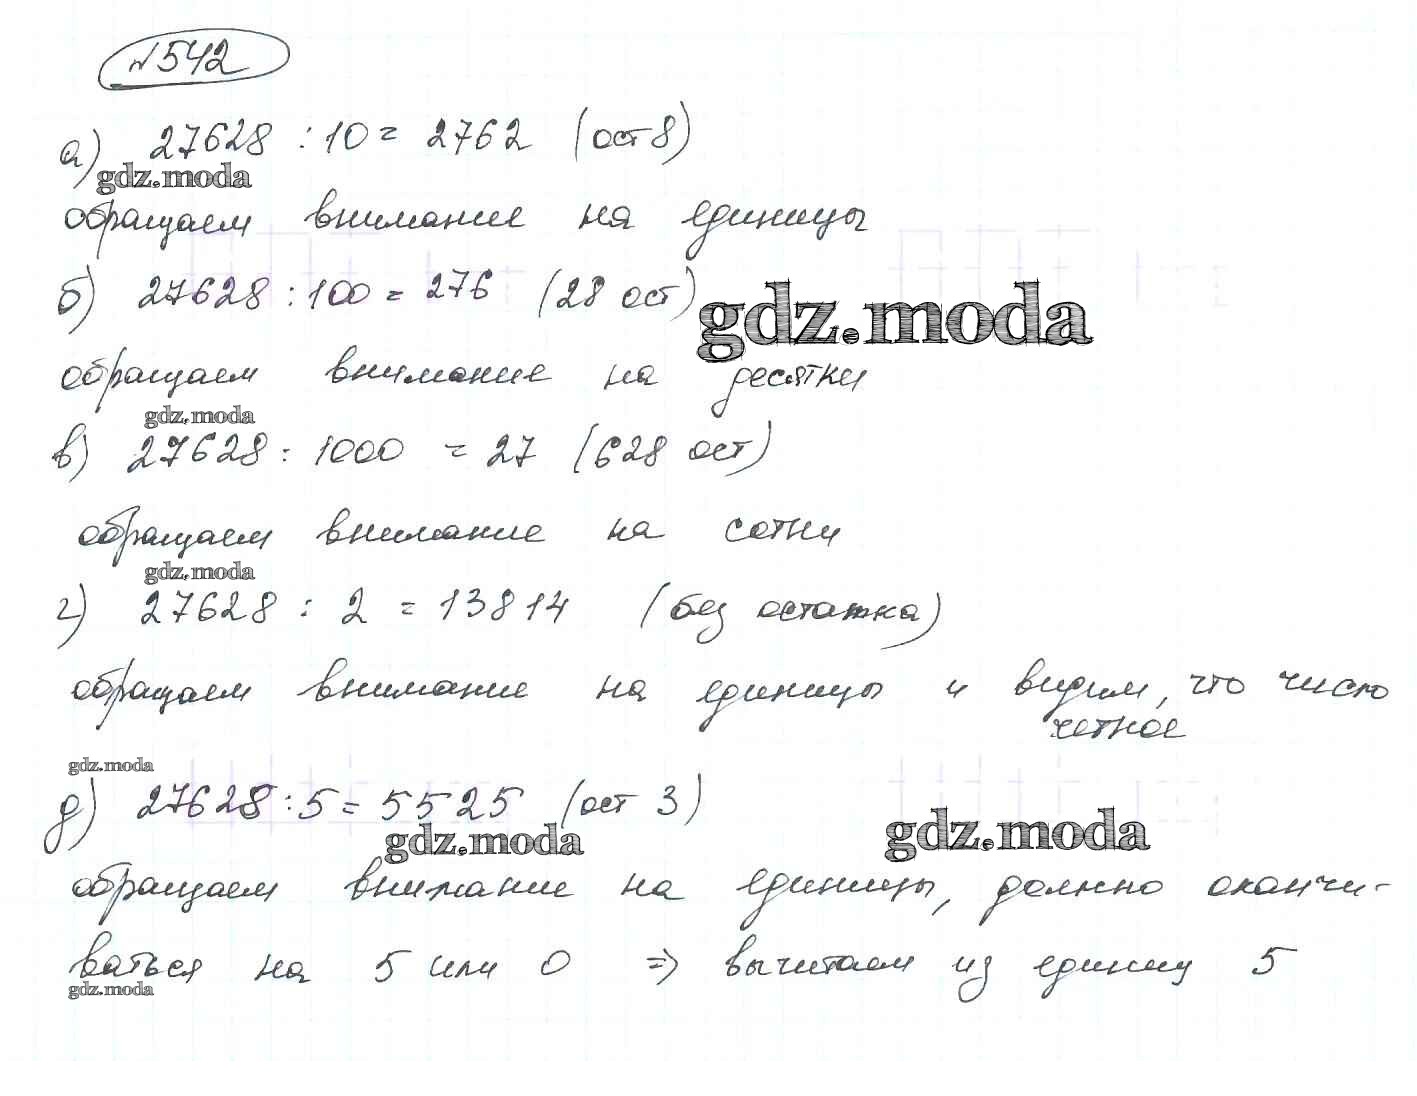 №542
а) 27628 : 10 = 2762 (ост 8)
gdz.moda
обращаем внимание на единицы
б) 27628 : 100 = 276 (28 ост)
gdz.moda
обращаем внимание на десятки
gdz.moda
в) 27628 : 1000 = 27 (628 ост)
обращаем внимание на сотни
gdz.moda
г) 27628 : 2 = 13814 (без остатка)
обращаем внимание на единицы и видим, что число
четное
gdz.moda
д) 27628 : 5 = 5525 (ост 3)
gdz.moda gdz.moda
обращаем внимание на единицы, должно оканчи-
ваться на 5 или 0 => вычитаем из единиц 5
gdz.moda